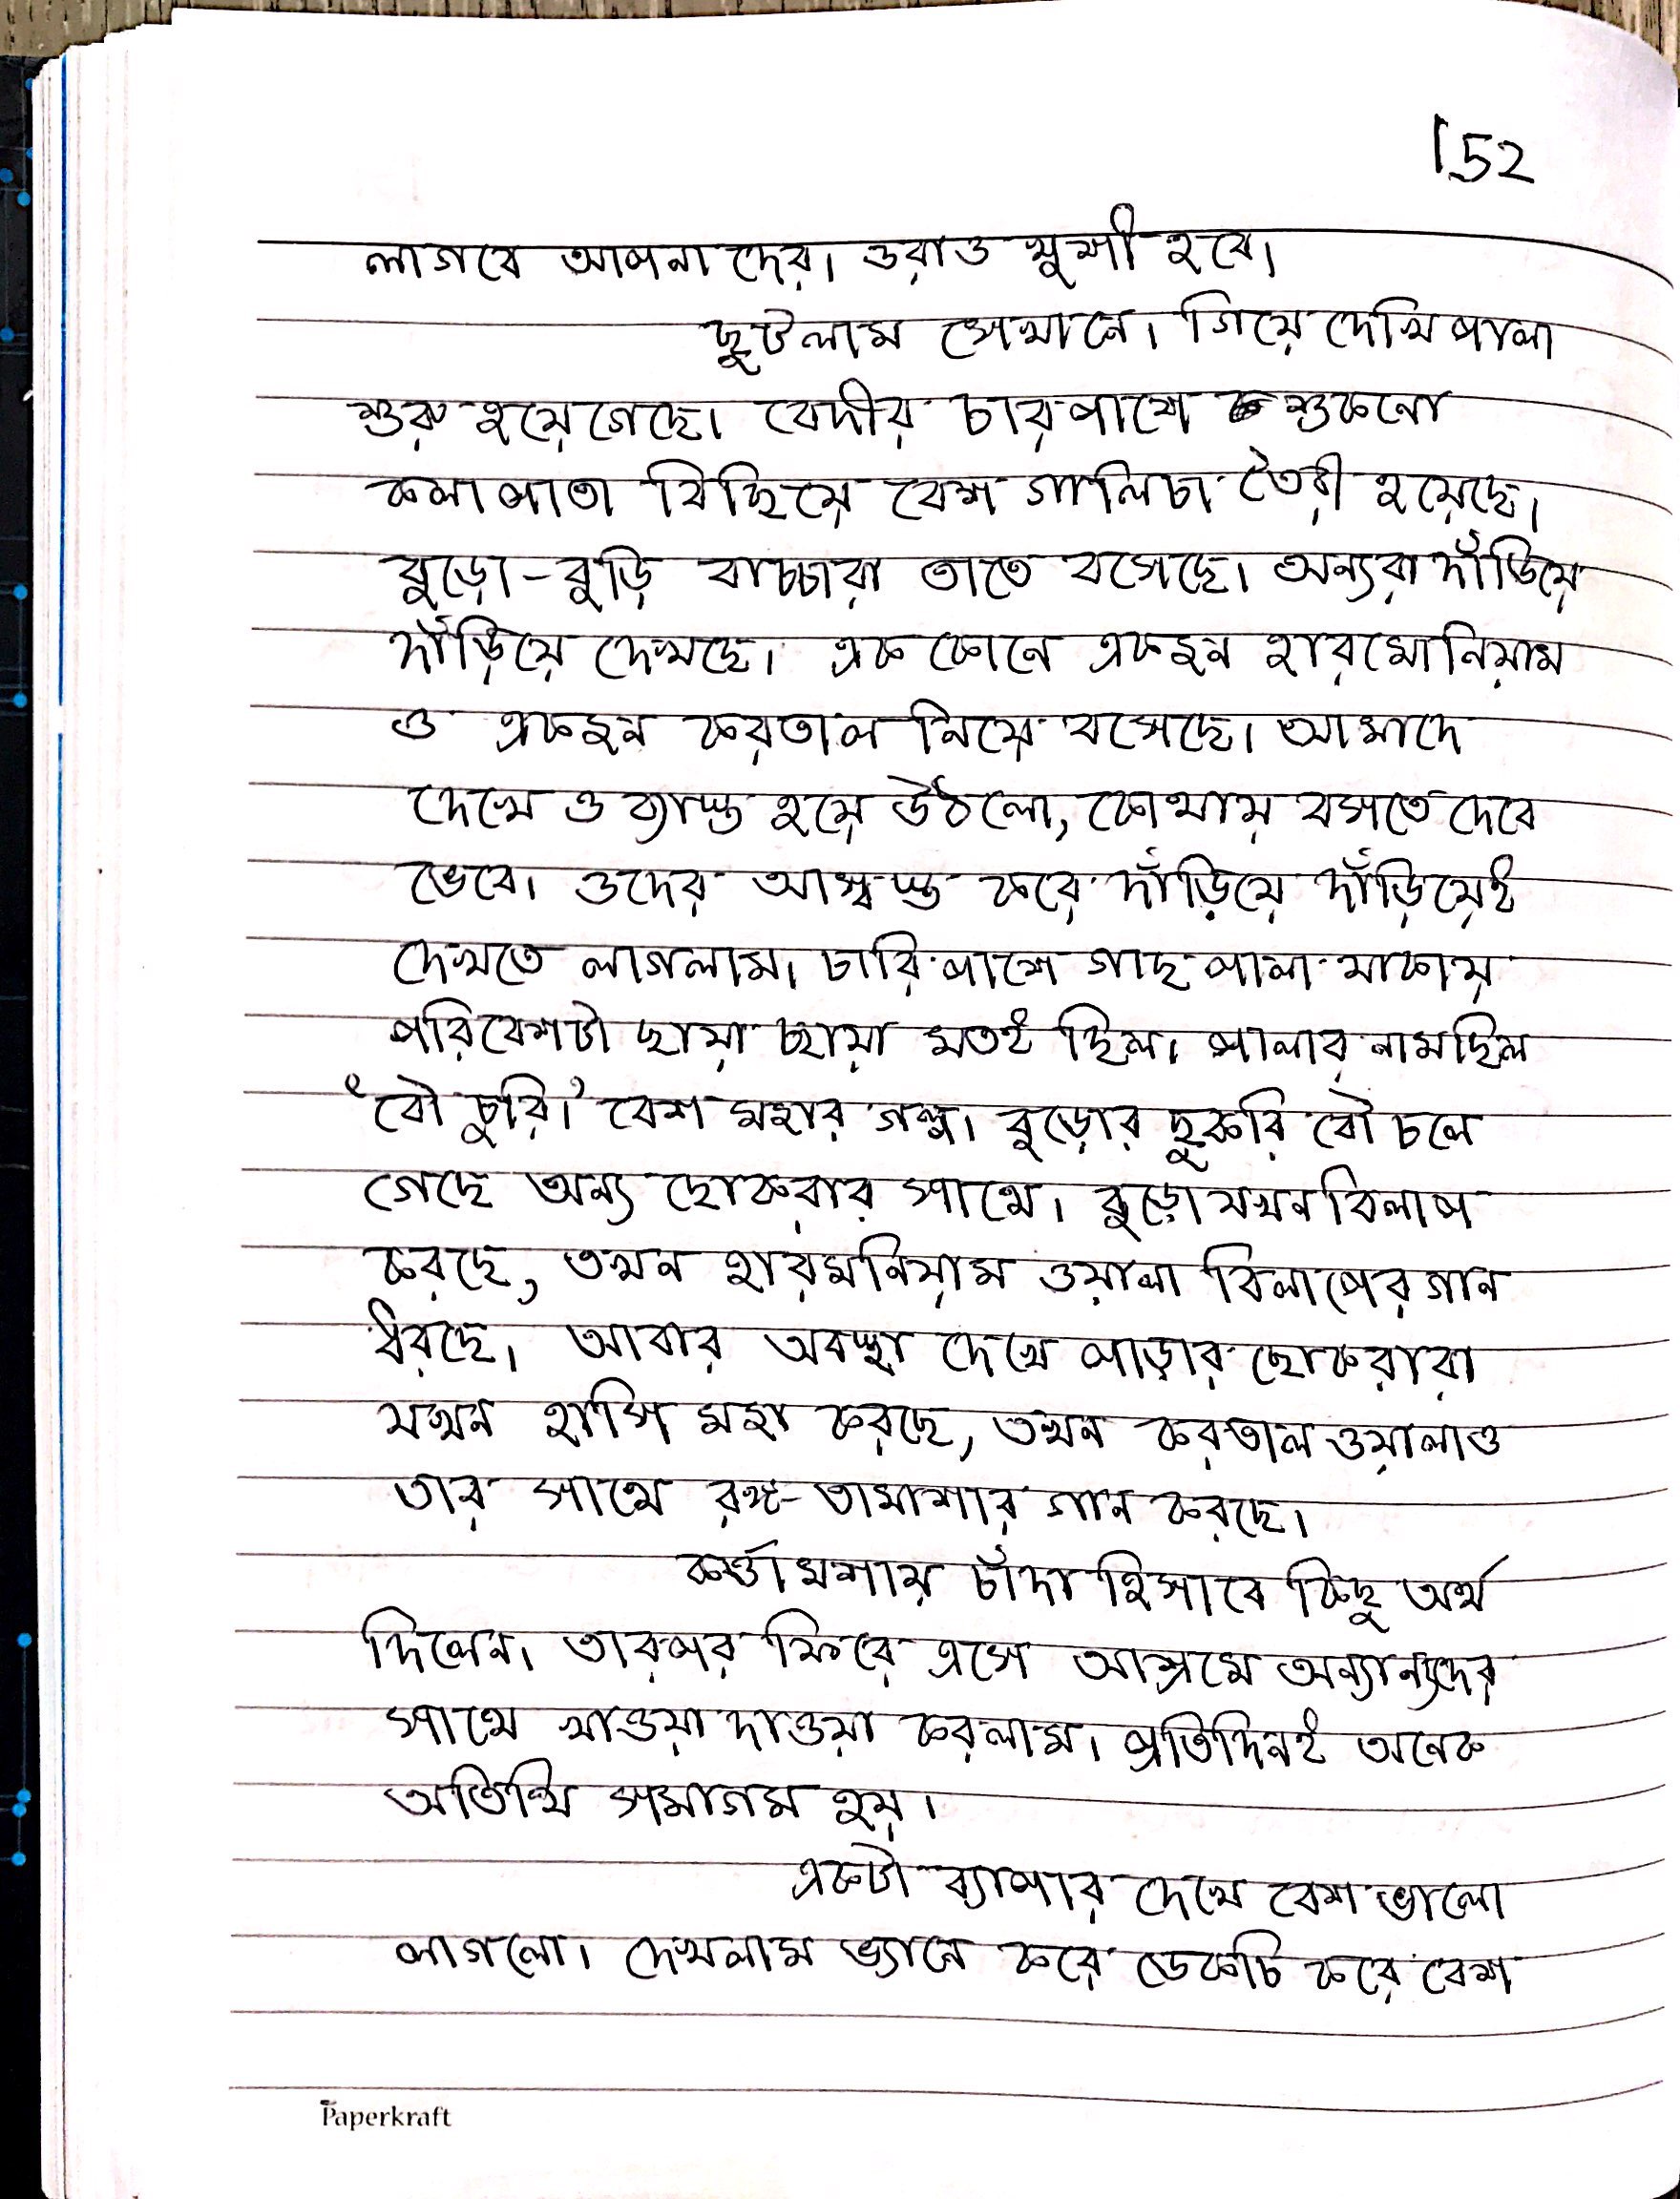 152
লাগবে আপনাদের। ওরাও খুশী হবে।
ছুটলাম সেখানে। গিয়ে দেখি পালা
শুরু হয়ে গেছে। বেদীর চারপাশে শুকনো
কলাপাতা বিছিয়ে বেশ গালিচা তৈরী হয়েছে।
বুড়ো-বুড়ি বাচ্চারা তাতে বসেছে। অন্যরা দাঁড়িয়ে
দাঁড়িয়ে দেখছে। এক কোনে একজন হারমোনিয়াম
ও একজন করতাল নিয়ে বসেছে। আমাদে
দেখে ও ব্যাস্ত হয়ে উঠলো, কোথায় বসতে দেবে
ভেবে। ওদের আস্বস্ত করে দাঁড়িয়ে দাঁড়িয়েই
দেখতে লাগলাম। চারিপাশে গাছপালা থাকায়
পরিবেশটা ছায়া ছায়া মতই ছিল। পালার নাম ছিল
'বৌ চুরি।' বেশ মজার গল্প। বুড়োর ছুকরি বৌ চলে
গেছে অন্য ছোকরার সাথে। বুড়ো যখন বিলাপ
করছে, তখন হারমনিয়াম ওয়ালা বিলাপের গান
ধরছে। আবার অবস্থা দেখে পাড়ার ছোকরারা
যখন হাসি মজা করছে, তখন করতাল ওয়ালাও
তার সাথে রঙ্গ-তামাশার গান করছে।
কর্ত্তামশায় চাঁদা হিসাবে কিছু অর্থ
দিলেন। তারপর ফিরে এসে আশ্রমে অন্যান্যদের
সাথে খাওয়া দাওয়া করলাম। প্রতিদিনই অনেক
অতিথি সমাগম হয়।
একটা ব্যাপার দেখে বেশ ভালো
লাগলো। দেখলাম ভ্যানে করে ডেকচি করে বেশ
Paperkraft